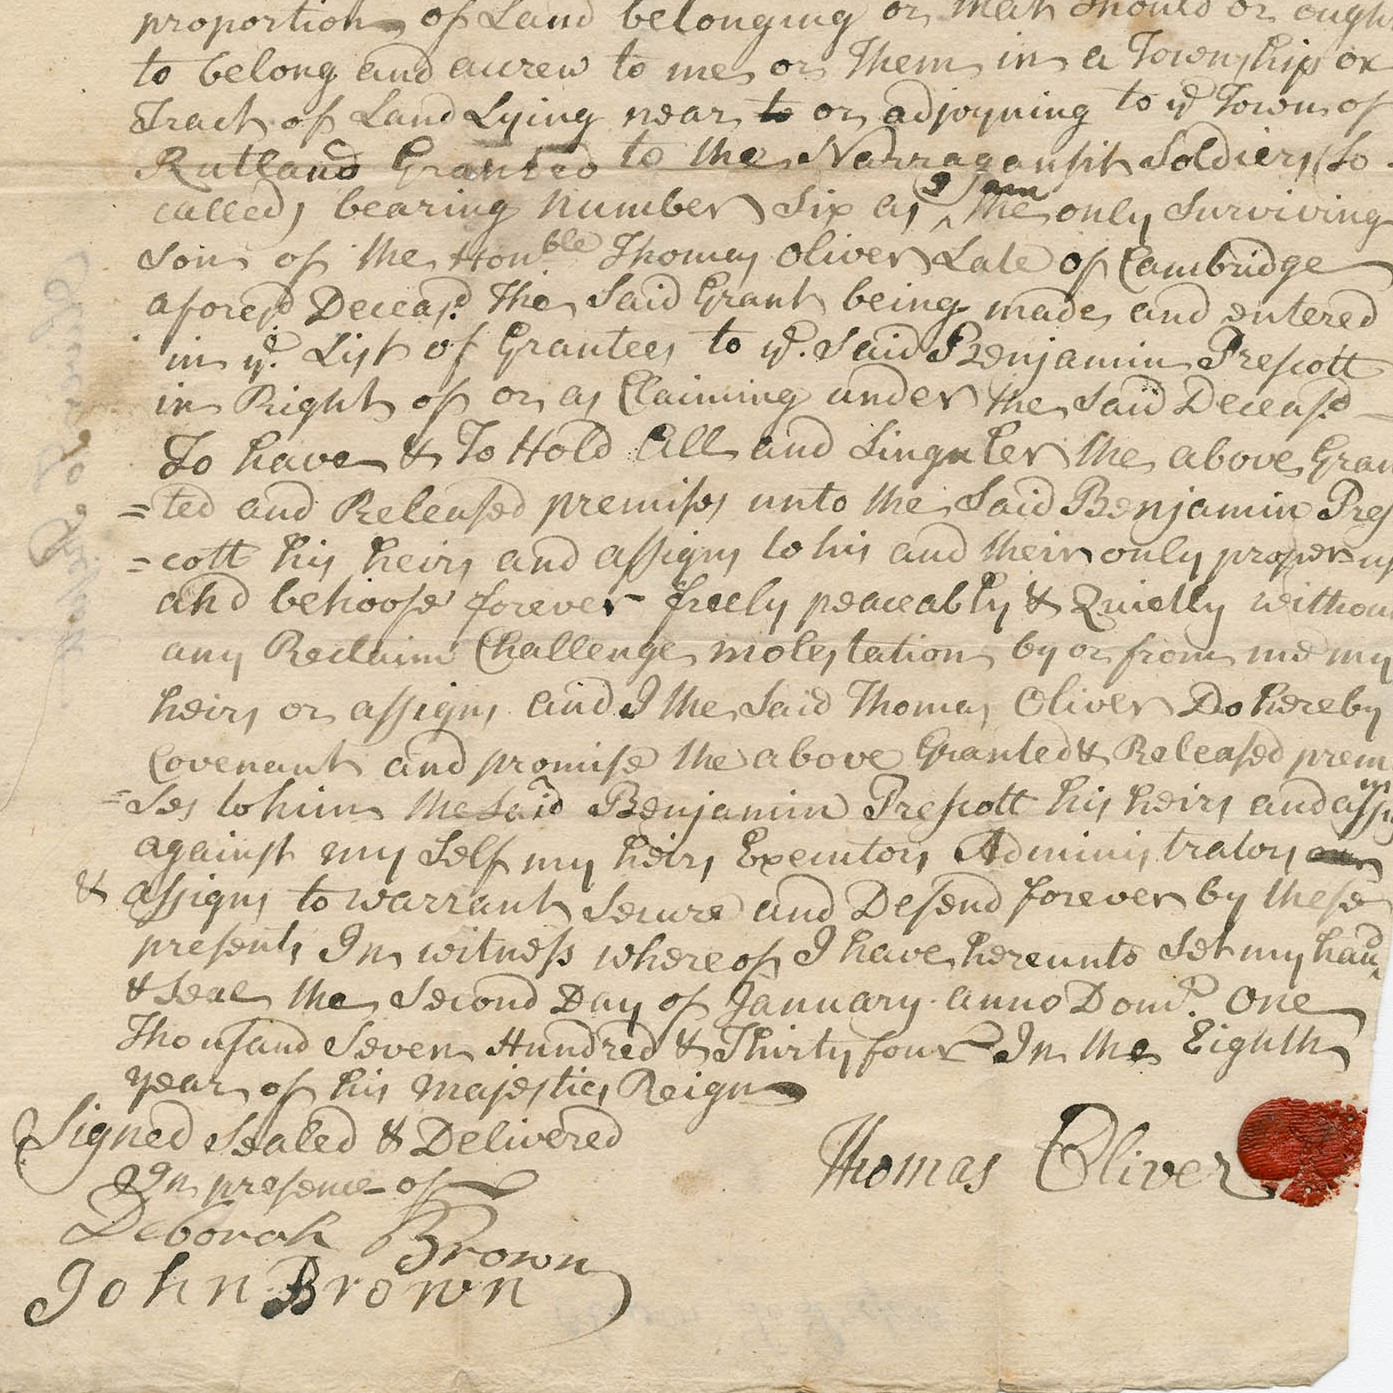 proportion of Land belonging or that should or ough
to belong and accrew to me or Them in a Township or
Tract of Land Lying near to or adjoyning to yᵉ Town of
Rutland Granted to the Narraganssit Soldiers (so
called) bearing Number Six as I am the only surviving
Son of the Honᵇˡᵉ Thomas Oliver Late of Cambridge
aforesᵈ Deceasᵈ The Said Grant being made and entered
in yᵉ List of Grantees to yᵉ Said Benjamin Prescott
in Right of or as Claiming under the Said Deceasᵈ
To have & To Hold All and Singuler the above Gran
=ted and Released premises unto the Said Benjamin Pres
=cott his heirs and assigns to his and their only proper us
and behoofe forever freely peaceably & Quietly withou
any Reclaim Challenge molestation by or from me my
heirs or assigns and I the Said Thomas Oliver Do hereby
Covenant and promise the above Granted & Released prem
=ses to him the Said Benjamin Prescott his heirs and assigns
against my Self my heirs Executors Administrators
& assigns to warrant Secure and Defend forever by these
presents In witness whereof I have hereunto Set my hand
& Seal the Second Day of January anno Domⁱ. One
Thousand Seven Hundred & Thirty four In the Eighth
year of his Majesties Reign
Signed Sealed & Delivered
In presence of
Thomas Oliver
Deborah Brown
John Brown